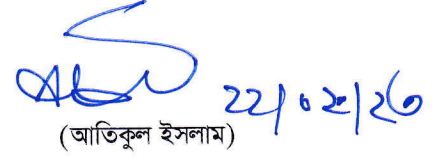 ২২/০২/২৩
(আতিকুল ইসলাম)